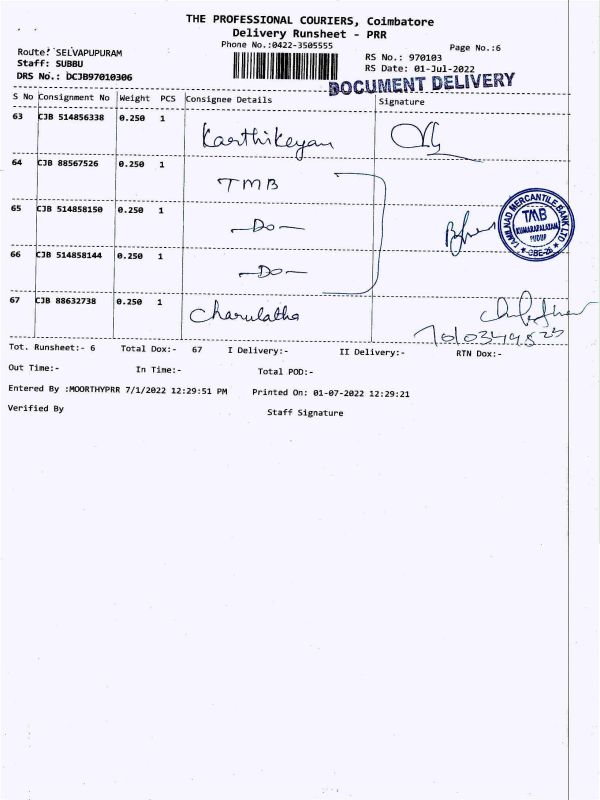 THE PROFESSIONAL COURIERS, Coimbatore
Delivery Runsheet - PRR
Phone No.:0422-3505555
Page No.:6
Route: SELVAPUPURAM
Staff: SUBBU
DRS No.: DCJB97010306
RS No.: 970103
RS Date: 01-Jul-2022
DOCUMENT DELIVERY
S No Consignment No Weight PCS Consignee Details Signature
63 CJB 514856338 0.250 1 Karthikeyan
64 CJB 88567526 0.250 1 TMB
65 CJB 514858150 0.250 1 -Do-
66 CJB 514858144 0.250 1 -Do-
TAMILNAD MERCANTILE BANK LTD
TMB
KUMARAPALAYAM
67 CJB 88632738 0.250 1 Charulatha
Tot. Runsheet:- 6 Total Dox:- 67 I Delivery:- II Delivery:- RTN Dox:-
Out Time:- In Time:- Total POD:-
Entered By :MOORTHYPRR 7/1/2022 12:29:51 PM Printed On: 01-07-2022 12:29:21
Verified By Staff Signature